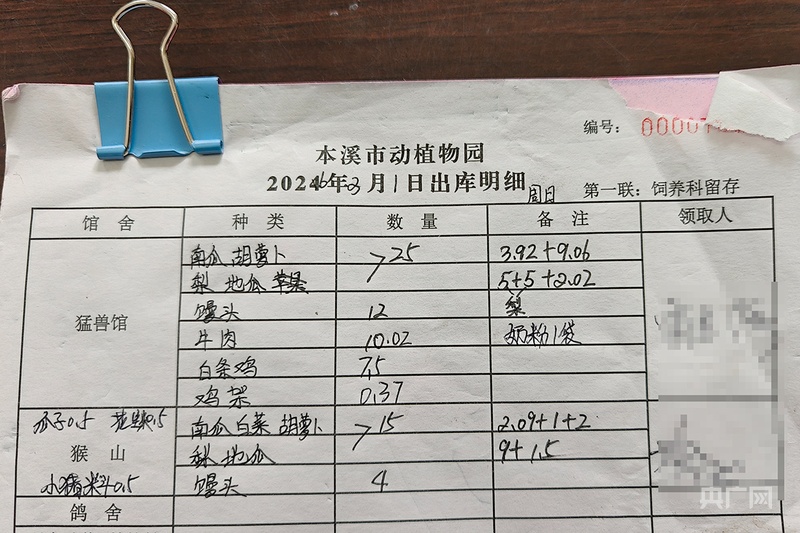 编号: 0000
本溪市动植物园
2026年3月1日出库明细 周日 第一联: 饲养科留存
馆舍 种类 数量 备注 领取人
猛兽馆
南瓜 胡萝卜 25 3.92+9.06
梨 地瓜 苹果 5+5+2.02
馒头 12 梨
牛肉 10.02 奶粉1袋
白条鸡 7.5
鸡架 0.37
瓜子0.5 0.5 南瓜 白菜 胡萝卜 15 2.09+1+2
猴山 梨 地瓜 9+1.5
小猪料0.5 馒头 4
鸽舍
央广网